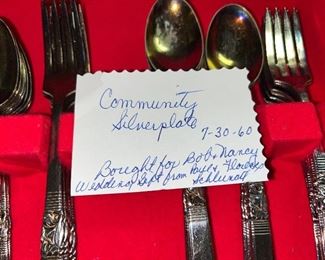 Community
Silverplate
7-30-60
Bought for Bob & Nancy
Wedding Gift from Paul & Florence